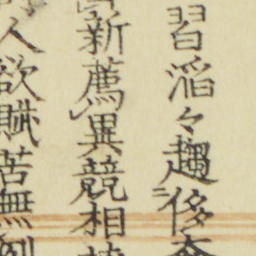 習滔々趨侈奢
新薦異競相
人欲賦苦無